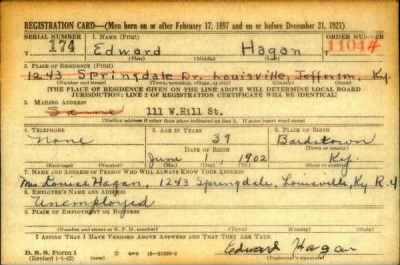 REGISTRATION CARD—(Men born on or after February 17, 1897 and on or before December 31, 1921)
SERIAL NUMBER 1. NAME (Print) ORDER NUMBER
174 Edward Hagan 11044
(First) (Middle) (Last)
2. PLACE OF RESIDENCE (Print)
1243 Springdale Dr. Louisville, Jefferson, Ky.
(Number and street) (Town, township, village, or city) (County) (State)
[THE PLACE OF RESIDENCE GIVEN ON THE LINE ABOVE WILL DETERMINE LOCAL BOARD
JURISDICTION; LINE 2 OF REGISTRATION CERTIFICATE WILL BE IDENTICAL]
3. MAILING ADDRESS
Same 111 W. Hill St.
[Mailing address if other than place indicated on line 2. If same insert word same]
4. TELEPHONE 5. AGE IN YEARS 6. PLACE OF BIRTH
None 39 Bardstown
DATE OF BIRTH (Town or county)
June 1902 Ky.
(Exchange) (Number) (Mo.) (Day) (Yr.) (State or country)
7. NAME AND ADDRESS OF PERSON WHO WILL ALWAYS KNOW YOUR ADDRESS
Mrs Louise Hagan, 1243 Springdale, Louisville, Ky R.4
8. EMPLOYER'S NAME AND ADDRESS
Unemployed
9. PLACE OF EMPLOYMENT OR BUSINESS
(Number and street or R. F. D. number) (Town) (County) (State)
I AFFIRM THAT I HAVE VERIFIED ABOVE ANSWERS AND THAT THEY ARE TRUE.
D. S. S. Form 1
(Revised 1-1-42) GPO Edward Hagan